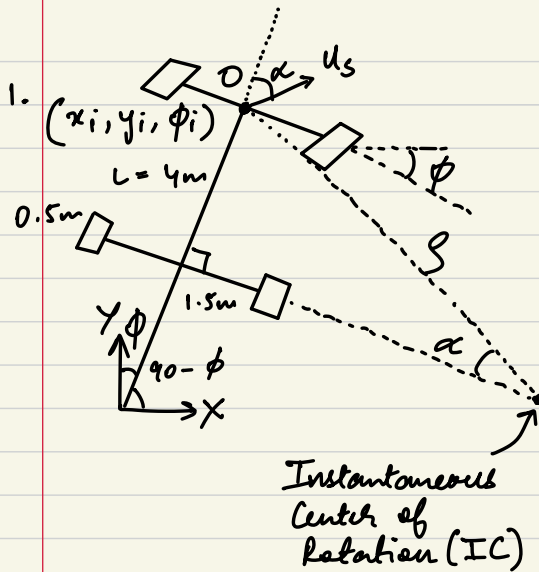 1.
O α u_s
(x_i, y_i, φ_i)
L = 4m
φ
0.5m
ρ
1.5m
Y φ
90 - φ
α
X
Instantaneous
Center of
Rotation (IC)